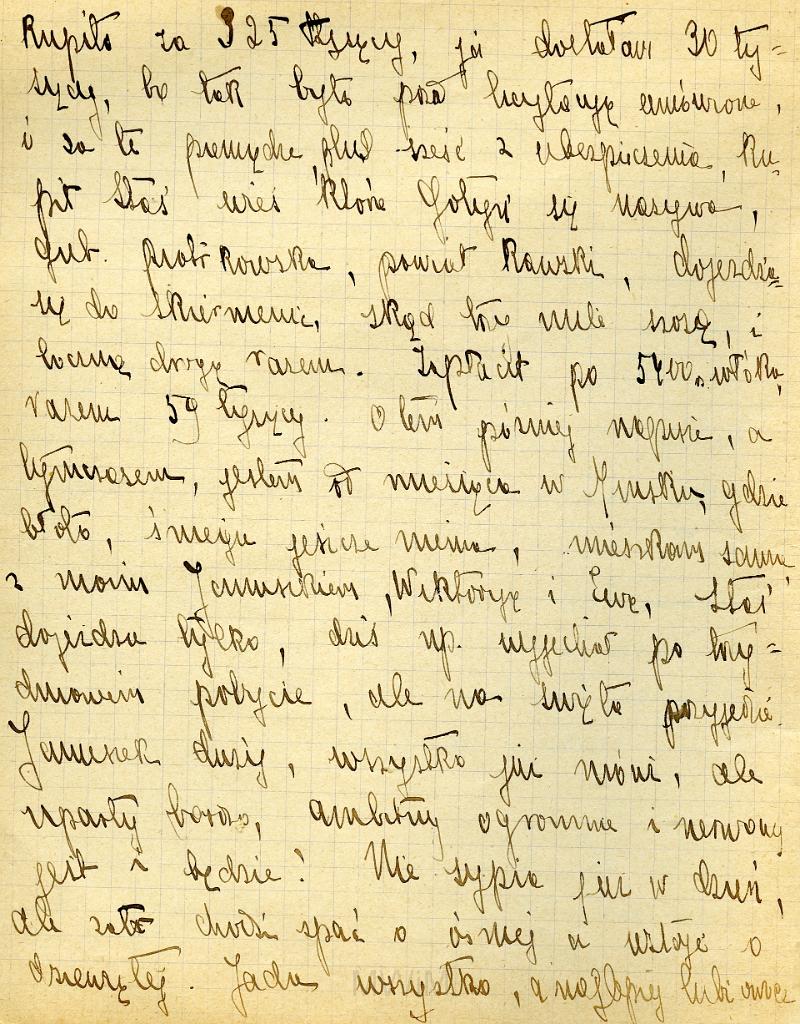 Kupiło za 325 tysięcy, ja dostałam 30 ty=
sięcy, bo tak było przed licytacyą umówione,
i za te pieniądze plus sześć z ubezpieczenia, ku-
pił Staś wieś która Gołyń się nazywa,
gub. piotrkowska, powiat Rawski, dojeżdża=
się do Skierniewic, skąd trzy mile szosą, i
boczną drogą razem. Zapłacił po 5400 włóka,
razem 59 tysięcy. O tem później napiszę, a
tymczasem, jestem od miesiąca w Mińsku, gdzie
błoto, śniegu jeszcze niema, mieszkam sama
z moim Januszkiem, Wiktoryą i Ewą, Staś
dojeżdża tylko, dziś np. wyjechał po trzy=
dniowym pobycie, ale na święta przyjedzie.
Januszek duży, wszystko już mówi, ale
uparty bardzo, ambitny ogromnie i nerwowy
jest i będzie! Nie sypia już w dzień,
ale zato chodzi spać o ósmej a wstaje o
dziewiątej. Jada wszystko, a najlepiej lubi owoce